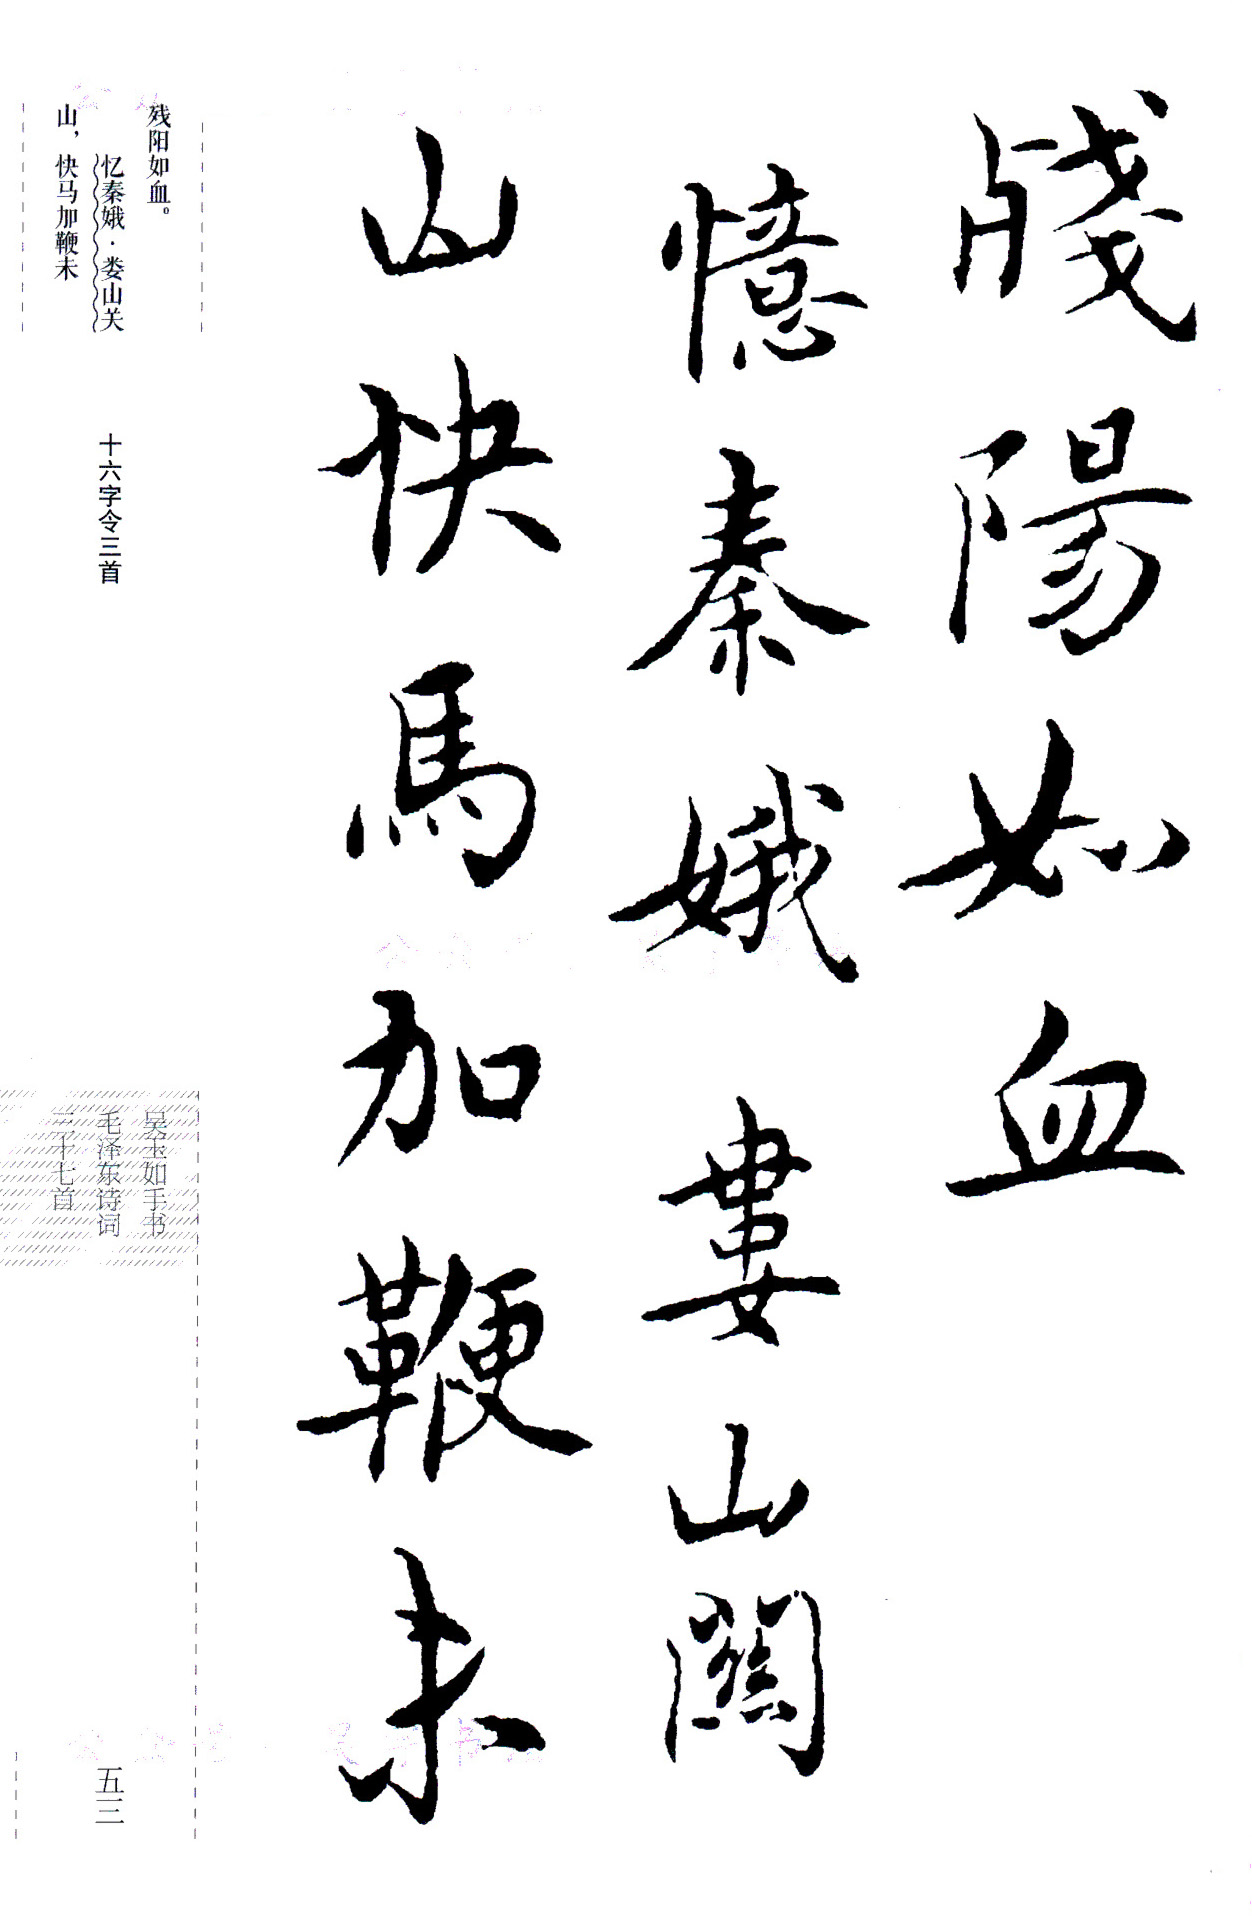 殘陽如血
憶秦娥婁山關
山快馬加鞭未
残阳如血。
忆秦娥·娄山关
十六字令三首
山，快马加鞭未
吴玉如手书
毛泽东诗词
三十七首
五三